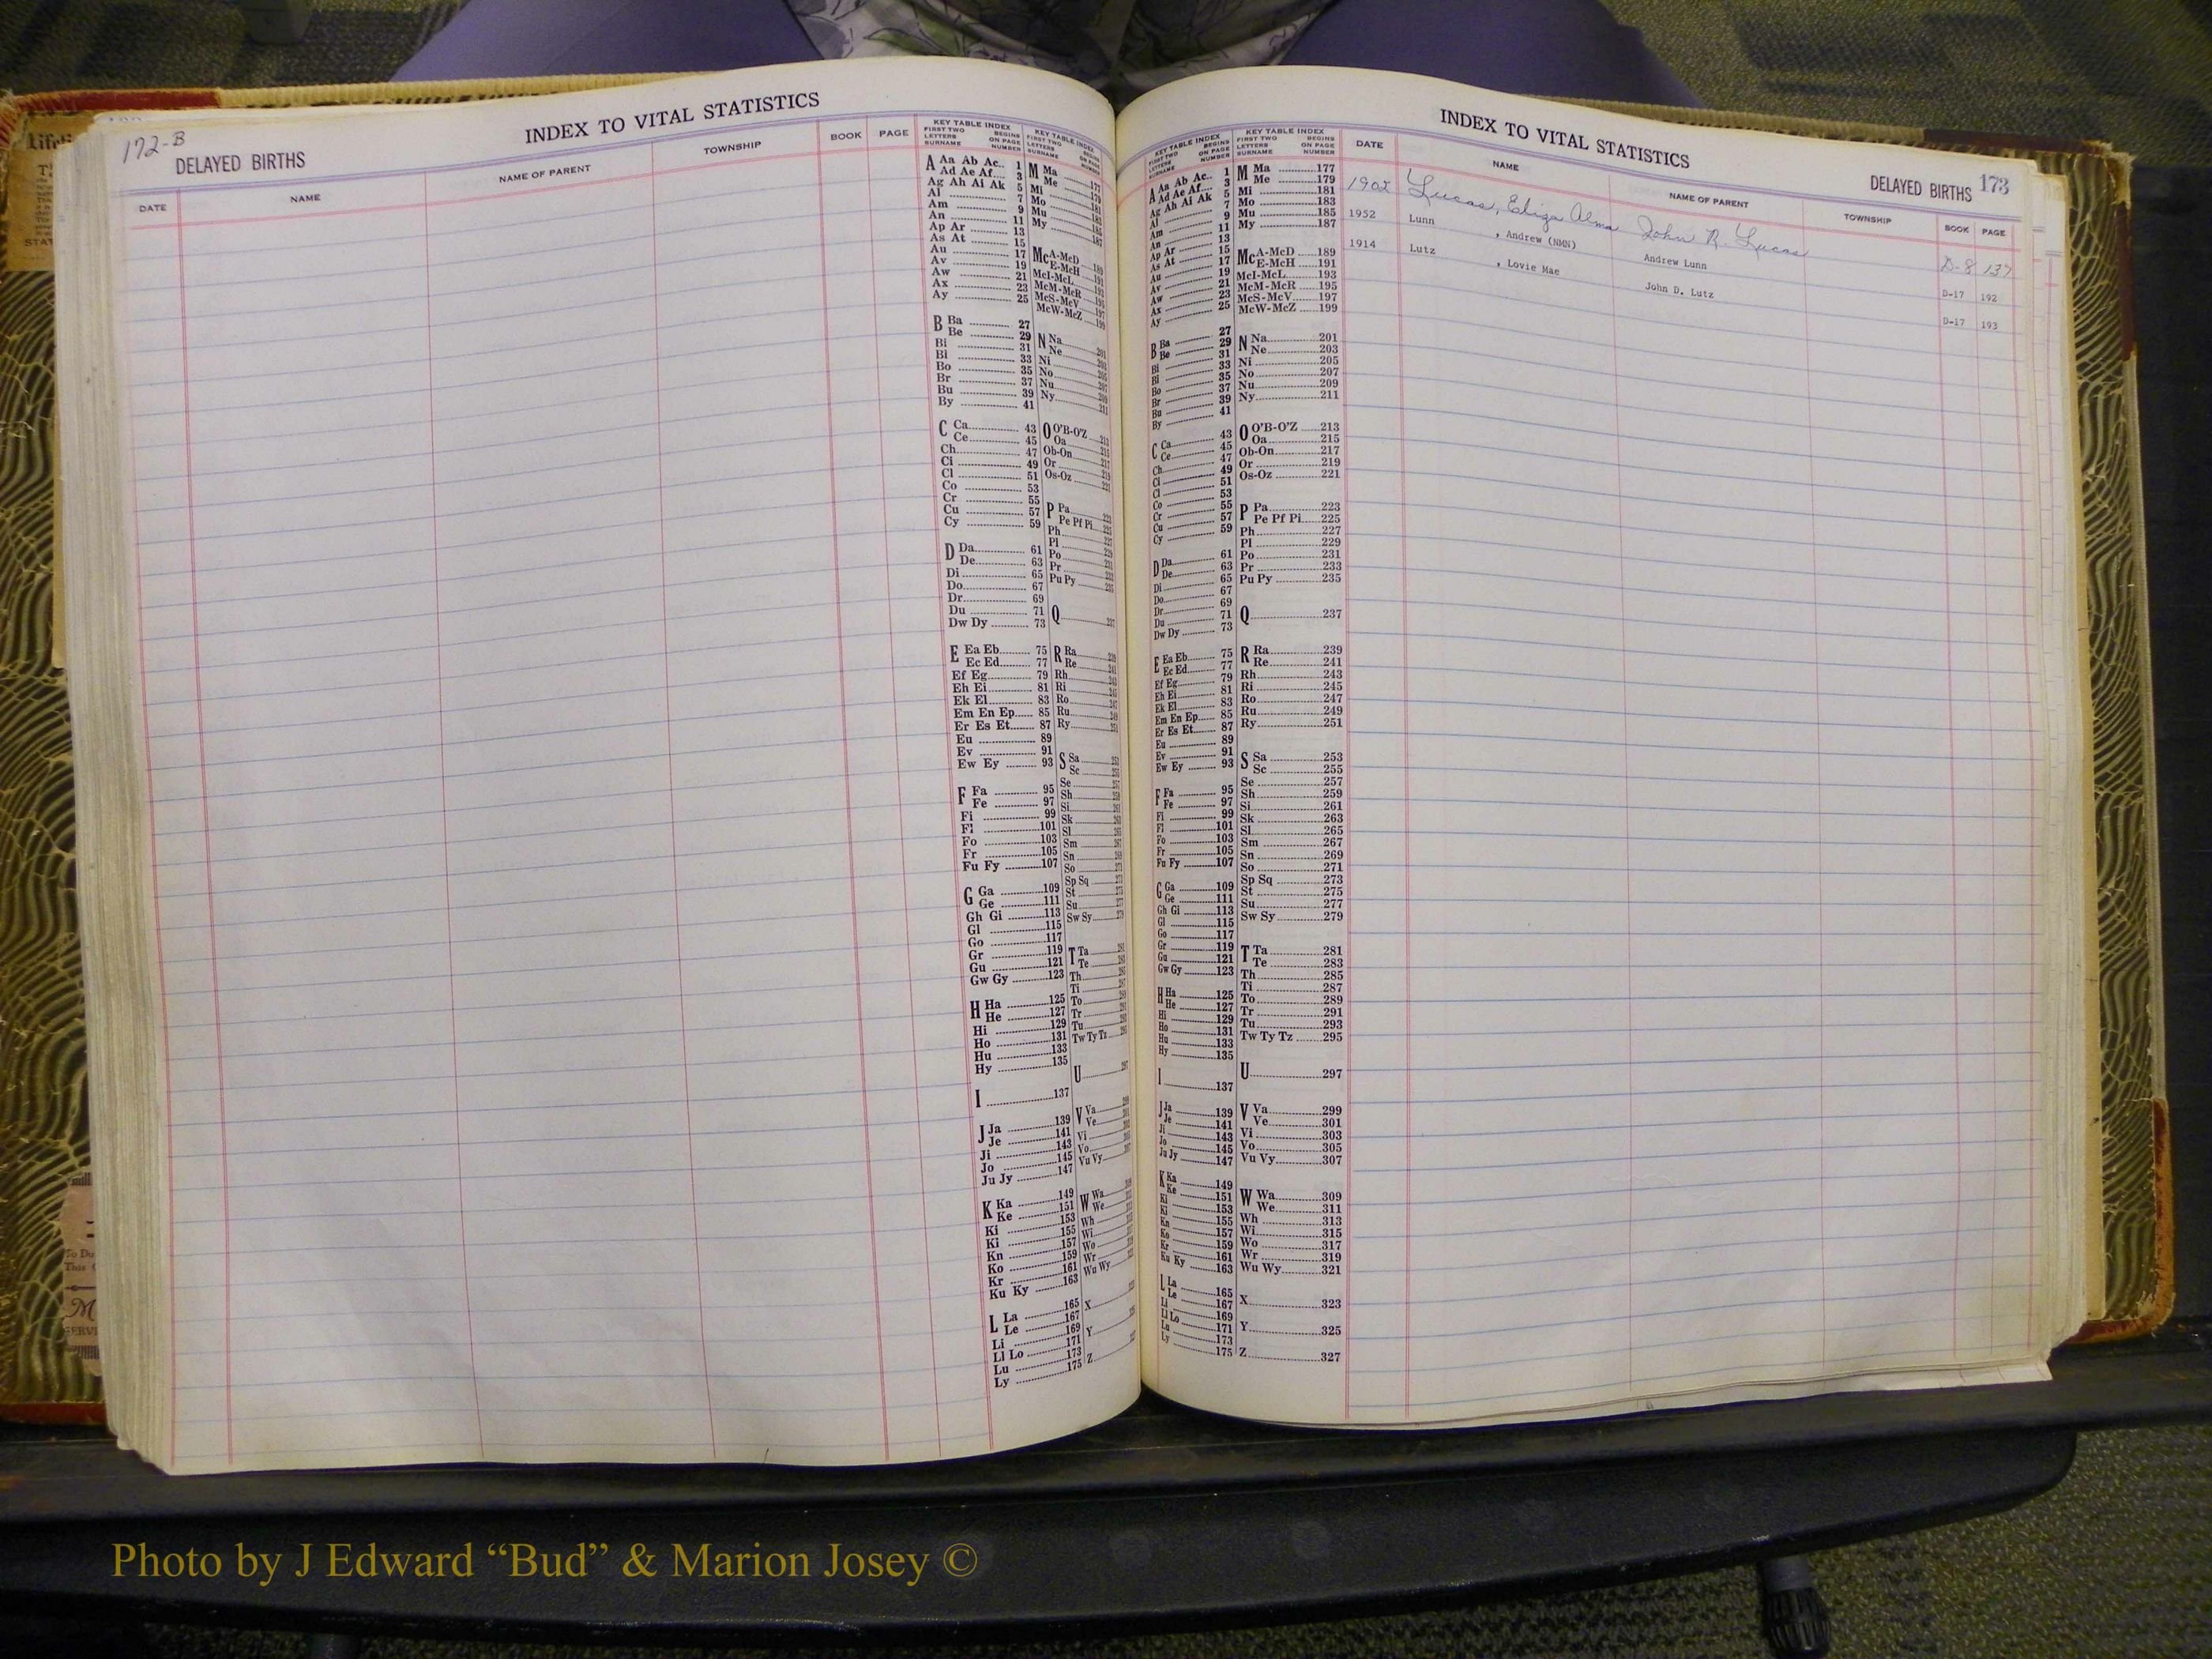 172-B
INDEX TO VITAL STATISTICS
DELAYED BIRTHS
DATE NAME NAME OF PARENT TOWNSHIP BOOK PAGE
KEY TABLE INDEX
FIRST TWO LETTERS SURNAME BEGINS ON PAGE NUMBER
A Aa Ab Ac.. 1
Ad Ae Af.... 3
Ag Ah Ai Ak 5
Al 7
Am 9
An 11
Ap Ar 13
As At 15
Au 17
Av 19
Aw 21
Ax 23
Ay 25
B Ba 27
Be 29
Bi 31
Bl 33
Bo 35
Br 37
Bu 39
By 41
C Ca 43
Ce 45
Ch 47
Ci 49
Cl 51
Co 53
Cr 55
Cu 57
Cy 59
D Da 61
De 63
Di 65
Do 67
Dr 69
Du 71
Dw Dy 73
E Ea Eb 75
Ec Ed 77
Ef Eg 79
Eh Ei 81
Ek El 83
Em En Ep 85
Er Es Et 87
Eu 89
Ev 91
Ew Ey 93
F Fa 95
Fe 97
Fi 99
Fl 101
Fo 103
Fr 105
Fu Fy 107
G Ga 109
Ge 111
Gh Gi 113
Gl 115
Go 117
Gr 119
Gu 121
Gw Gy 123
H Ha 125
He 127
Hi 129
Ho 131
Hu 133
Hy 135
I 137
J Ja 139
Je 141
Ji 143
Jo 145
Ju Jy 147
K Ka 149
Ke 151
Ki 153
Ki 155
Kn 157
Ko 159
Kr 161
Ku Ky 163
L La 165
Le 167
Li 169
Ll Lo 171
Lu 173
Ly 175
INDEX TO VITAL STATISTICS
DELAYED BIRTHS 173
KEY TABLE INDEX
FIRST TWO LETTERS SURNAME BEGINS ON PAGE NUMBER
M Ma 177
Me 179
Mi 181
Mo 183
Mu 185
My 187
McA-McD 189
E-McH 191
McI-McL 193
McM-McR 195
McS-McV 197
McW-McZ 199
N Na 201
Ne 203
Ni 205
No 207
Nu 209
Ny 211
O O'B-O'Z 213
Oa 215
Ob-On 217
Or 219
Os-Oz 221
P Pa 223
Pe Pf Pi 225
Ph 227
Pl 229
Po 231
Pr 233
Pu Py 235
Q 237
R Ra 239
Re 241
Rh 243
Ri 245
Ro 247
Ru 249
Ry 251
S Sa 253
Sc 255
Se 257
Sh 259
Si 261
Sk 263
Sl 265
Sm 267
Sn 269
So 271
Sp Sq 273
St 275
Su 277
Sw Sy 279
T Ta 281
Te 283
Th 285
Ti 287
To 289
Tr 291
Tu 293
Tw Ty Tz 295
U 297
V Va 299
Ve 301
Vi 303
Vo 305
Vu Vy 307
W Wa 309
We 311
Wh 313
Wi 315
Wo 317
Wr 319
Wu Wy 321
X 323
Y 325
Z 327
DATE NAME NAME OF PARENT TOWNSHIP BOOK PAGE
1902 Lucas, Eliza Alma John R. Lucas D-8 137
1952 Lunn , Andrew (NMN) Andrew Lunn D-17 192
1914 Lutz , Lovie Mae John D. Lutz D-17 193
Photo by J Edward “Bud” & Marion Josey ©